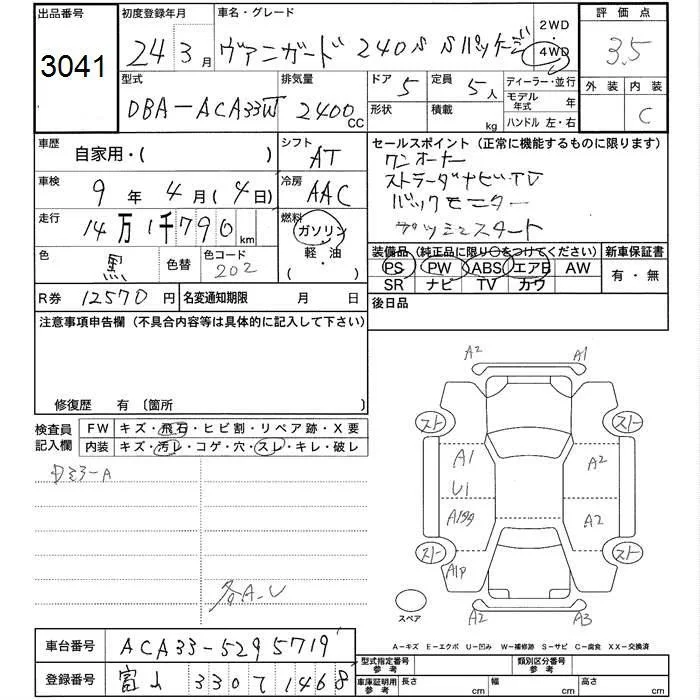 出品番号 初度登録年月 車名・グレード 2WD 評価点
3041 24 3月 ヴァンガード 240S Sパッケージ 4WD 3.5
型式 排気量 ドア 5 定員 5人 ディーラー・並行 外装 内装
DBA-ACA33W 2400CC 形状 積載 kg モデル年式 年 C
ハンドル 左・右
車歴 自家用・( ) シフト AT セールスポイント (正常に機能するものに限ります)
ワンオーナー
車検 9年 4月 (4日) 冷房 AAC ストラーダナビ・TV
バックモニター
走行 14万1千790km 燃料 ガソリン・軽油 ( ) プッシュスタート
色 黒 色替 色コード 202 装備品 (純正品に限り○をつけてください) 新車保証書
PS PW ABS エアB AW 有・無
SR ナビ TV カワ
R券 12570円 名変通知期限 月 日 後日品
注意事項申告欄 (不具合内容等は具体的に記入して下さい)
修復歴 有 〔箇所
検査員記入欄 FW キズ・飛石・ヒビ割・リペア跡・X要
内装 キズ・汚レ・コゲ・穴・スレ・キレ・破レ
A2 A1
スト スト
A1 A2
U1
A2
スト スト
A1P
各A-U
スペア A2 A3
A-キズ E-エクボ U-凹み W-補修跡 S-サビ C-腐食 XX-交換済
車台番号 ACA33-5295719
型式指定番号 参考 類別区分番号 参考
登録番号 富山 330 て 1468
車庫証明用 参考 長さ cm 幅 cm 高さ cm